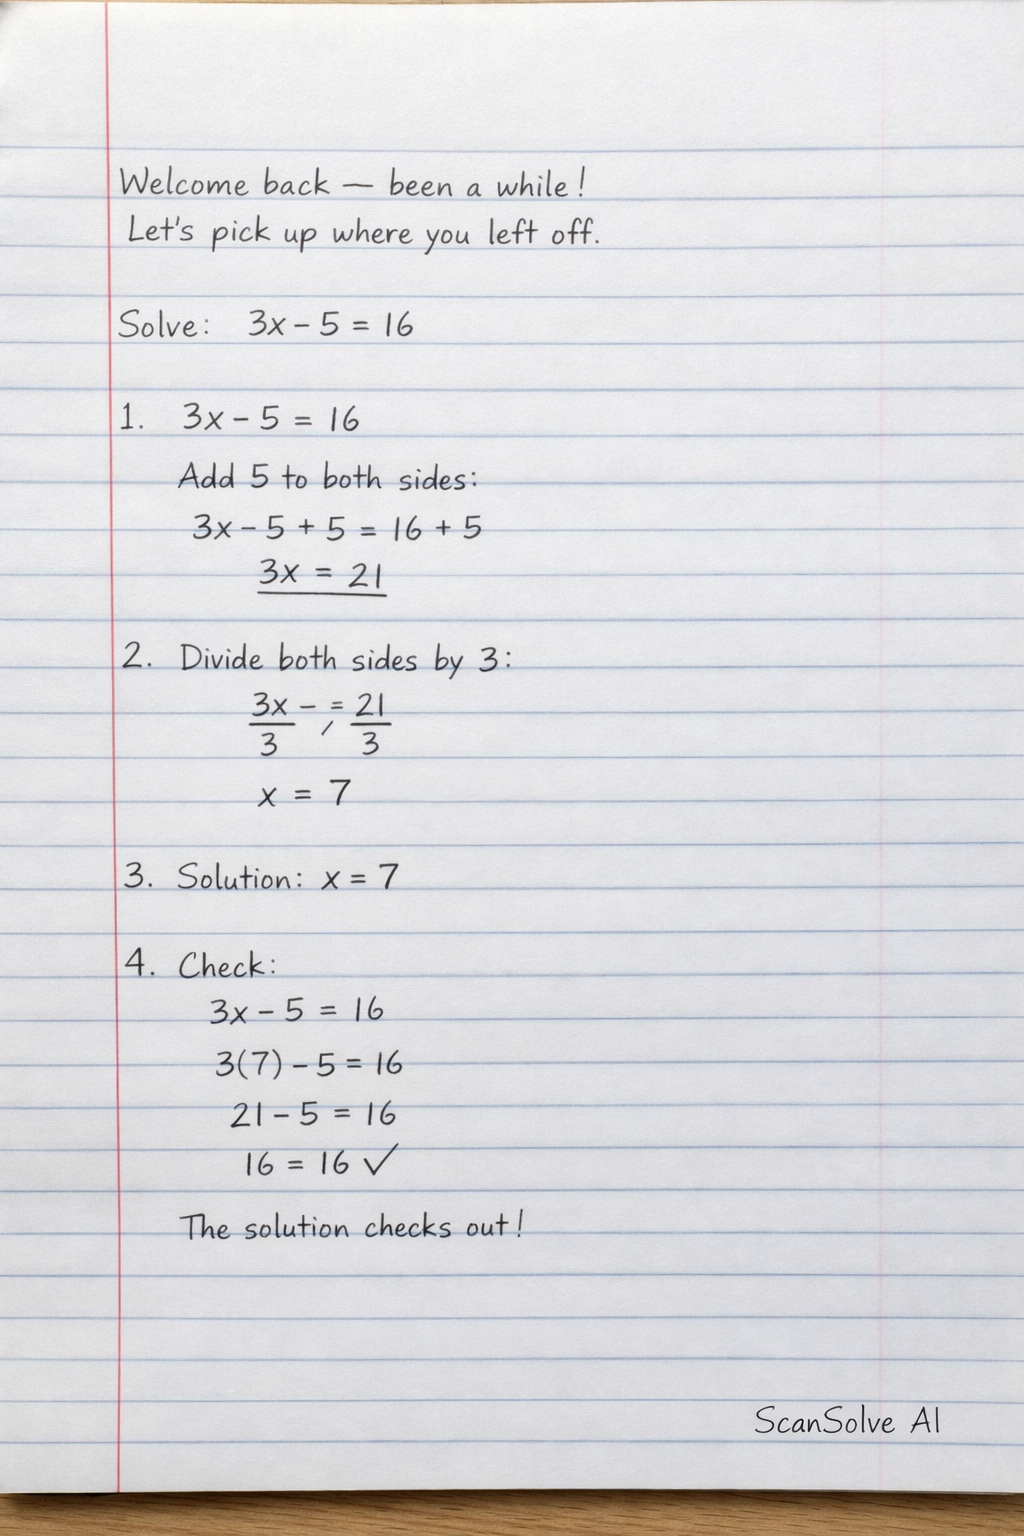 Welcome back — been a while!
Let's pick up where you left off.
Solve: 3x - 5 = 16
1. 3x - 5 = 16
Add 5 to both sides:
3x - 5 + 5 = 16 + 5
3x = 21
2. Divide both sides by 3:
3x - = 21
3 / 3
x = 7
3. Solution: x = 7
4. Check:
3x - 5 = 16
3(7) - 5 = 16
21 - 5 = 16
16 = 16 ✓
The solution checks out!
ScanSolve AI